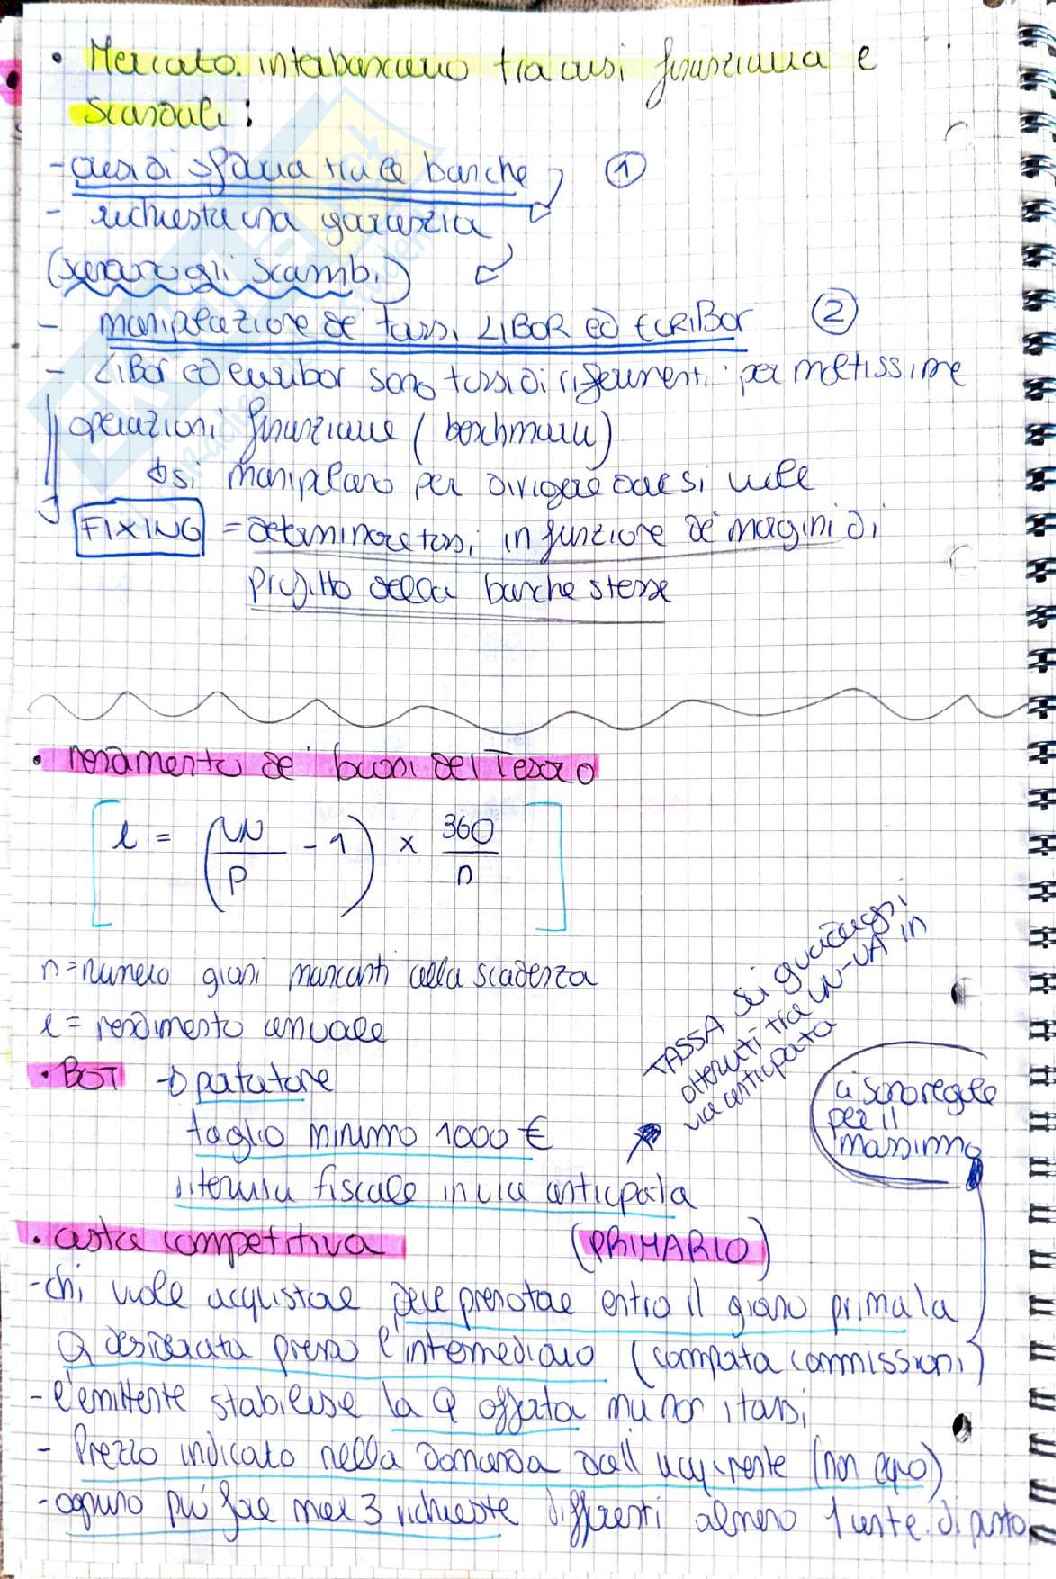 • Mercato interbancario tra crisi finanziaria e
scandali:
- crisi di sfiducia tra le banche ①
- richiesta una garanzia
(seranno gli scambi)
- manipolazione de tassi LIBOR ed EURIBOR ②
- LIBOR ed euribor sono tassi di riferimenti per moltissime
operazioni finanziarie (
si manipolano per dirigere dove si vuole
FIXING = determinare tassi in funzione de margini di
profitto della banche stesse
• rendimento de buoni del Tesoro
i = (VN/P - 1) × 360/n
n = numero giorni mancanti alla scadenza
i = rendimento annuale
TASSA sui guadagni
ottenuti tra VN-VA in
via anticipata
• BOT → portatore
ci sono regole
per il
massimo
taglio minimo 1000 €
ritenuta fiscale in via anticipata
• asta competitiva (PRIMARIO)
- chi vuole acquistare deve prenotare entro il giorno prima la
Q desiderata presso l'intermediario (comporta commissioni)
- l'emittente stabilisce la Q offerta ma non i tassi
- Prezzo indicato nella domanda dall'acquirente (non equo)
- ognuno può fare max 3 richieste differenti almeno 1 di punto